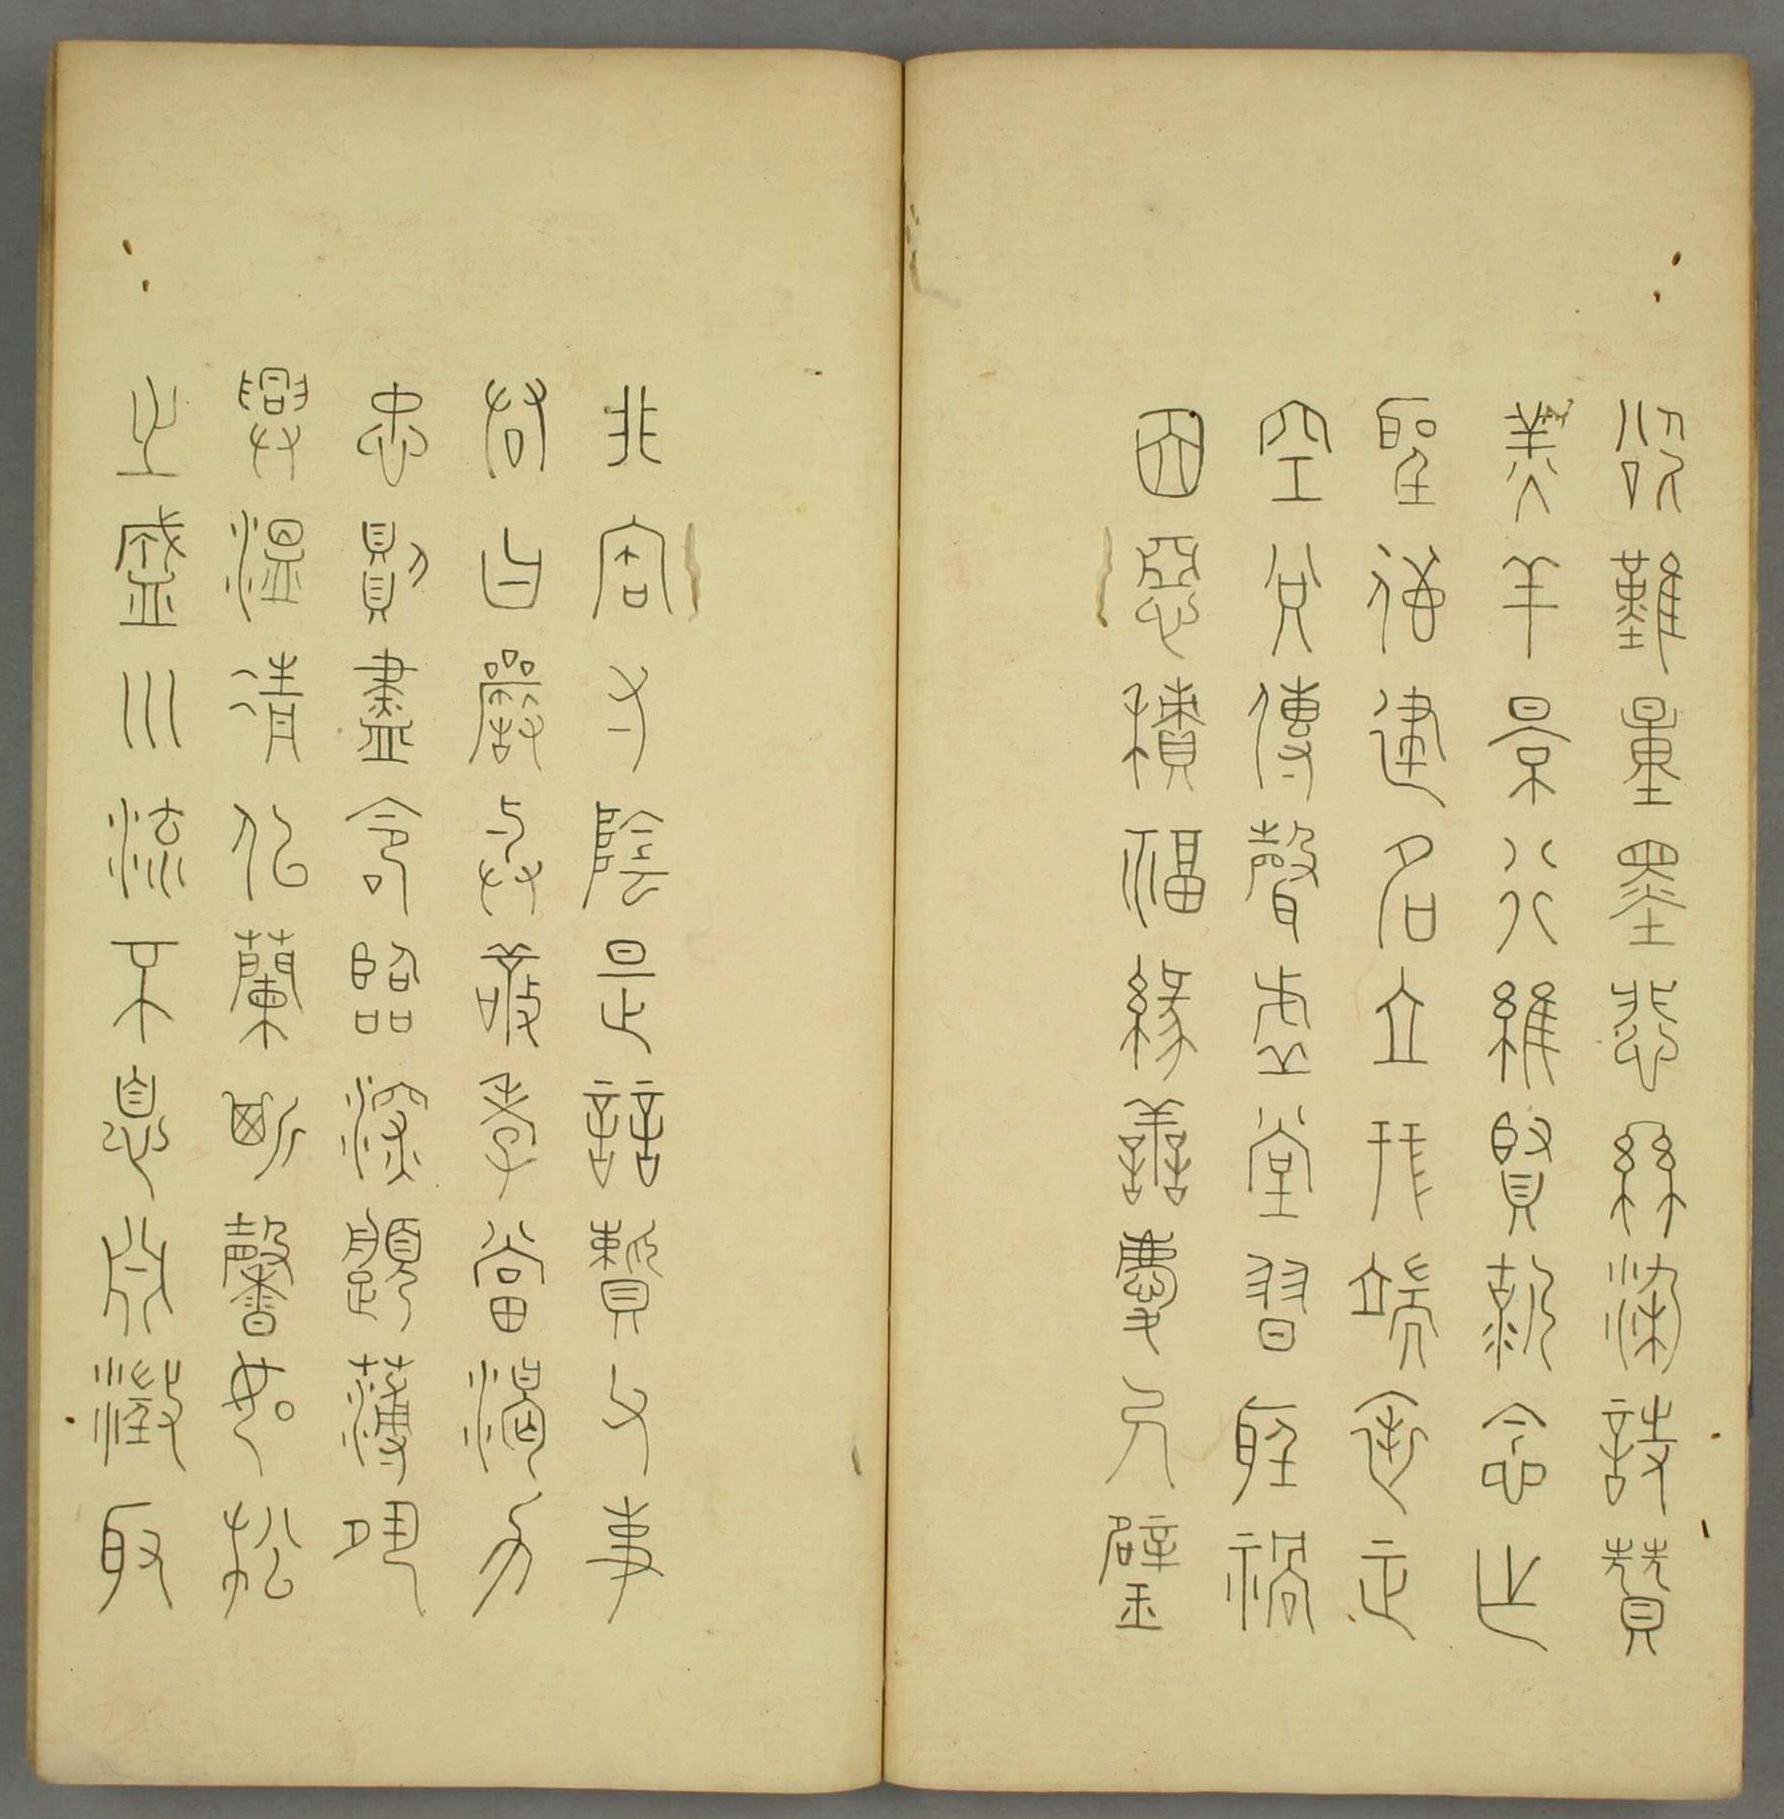 欲難量墨悲絲染詩贊
羔羊景行維賢剋念作
聖德建名立形端表正
空谷傳聲虛堂習聽禍
因惡積福緣善慶尺璧
非寶寸陰是競資父事
君曰嚴與敬孝當竭力
忠則盡命臨深履薄夙
興溫凊似蘭斯馨如松
之盛川流不息淵澄取